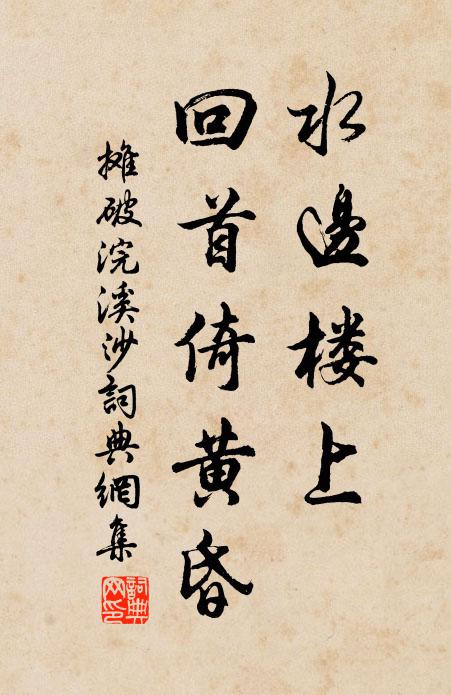 水邊楼上
回首倚黄昏
攤破浣溪沙詞典網集
詞典网印